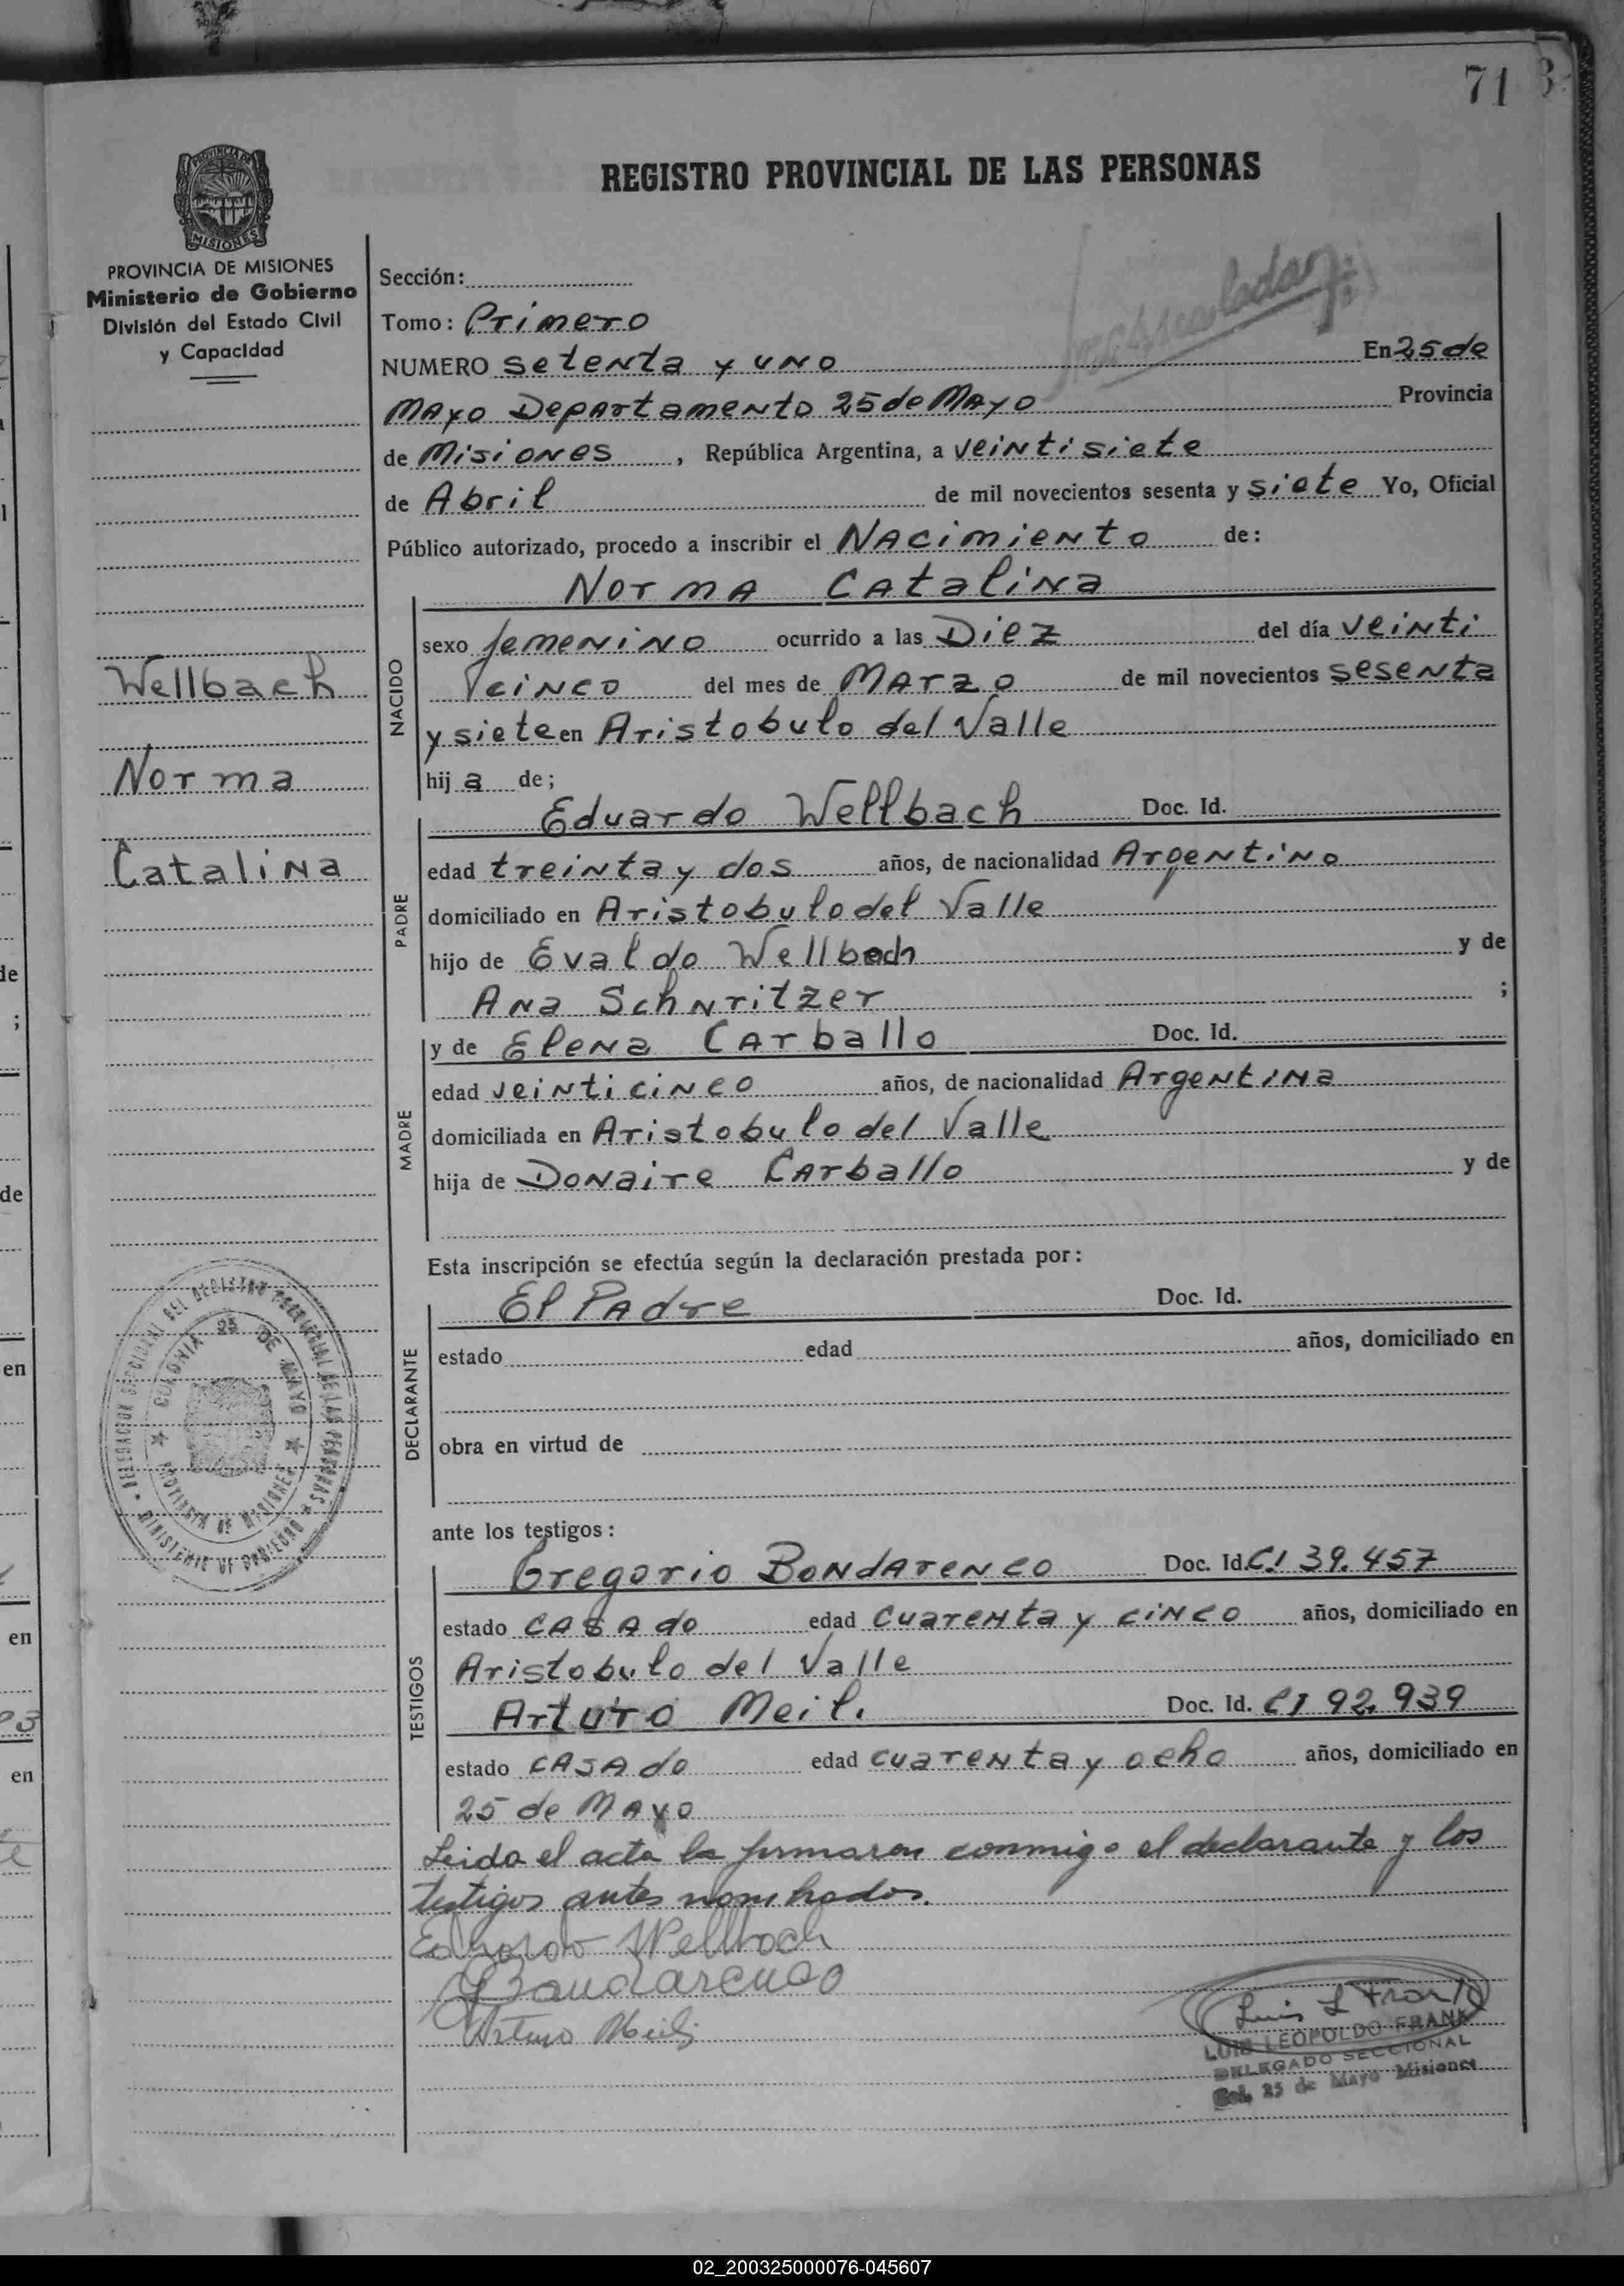 71
REGISTRO PROVINCIAL DE LAS PERSONAS
PROVINCIA DE
MISIONES
PROVINCIA DE MISIONES
Ministerio de Gobierno
División del Estado Civil
y Capacidad
Wellbach
Norma
Catalina
Sección:
Tomo: Primero
NUMERO setenta y uno En 25 de
Mayo Departamento 25 de Mayo Provincia
de Misiones, República Argentina, a veintisiete
de Abril de mil novecientos sesenta y siete Yo, Oficial
Público autorizado, procedo a inscribir el Nacimiento de:
Norma Catalina
NACIDO
sexo femenino ocurrido a las Diez del día veinti
cinco del mes de Marzo de mil novecientos sesenta
y siete en Aristobulo del Valle
hij a de;
Eduardo Wellbach Doc. Id.
PADRE
edad treinta y dos años, de nacionalidad Argentino
domiciliado en Aristobulo del Valle
hijo de Evaldo Wellbach y de
Ana Schnritzer ;
y de Elena Carballo Doc. Id.
MADRE
edad veinticinco años, de nacionalidad Argentina
domiciliada en Aristobulo del Valle
hija de Donaire Carballo y de
Esta inscripción se efectúa según la declaración prestada por:
El Padre Doc. Id.
DECLARANTE
estado edad años, domiciliado en
obra en virtud de
ante los testigos:
Gregorio Bondarenco Doc. Id. C.I 39.457
TESTIGOS
estado casado edad cuarenta y cinco años, domiciliado en
Aristobulo del Valle
Arturo Meil. Doc. Id. CI 92.939
estado casado edad cuarenta y ocho años, domiciliado en
25 de Mayo
Leida el acta la firmaron conmigo el declarante y los
testigos antes nombrados.
Eduardo Wellbach
Bondarenco
Arturo
Luis L Frank
LUIS LEOPOLDO FRANK
DELEGADO SECCIONAL
Col. 25 de Mayo Misiones
DELEGACION SECCIONAL DEL REGISTRO PROVINCIAL DE LAS PERSONAS
MINISTERIO DE GOBIERNO
COLONIA 25 DE MAYO
PROVINCIA DE MISIONES
02_200325000076-045607